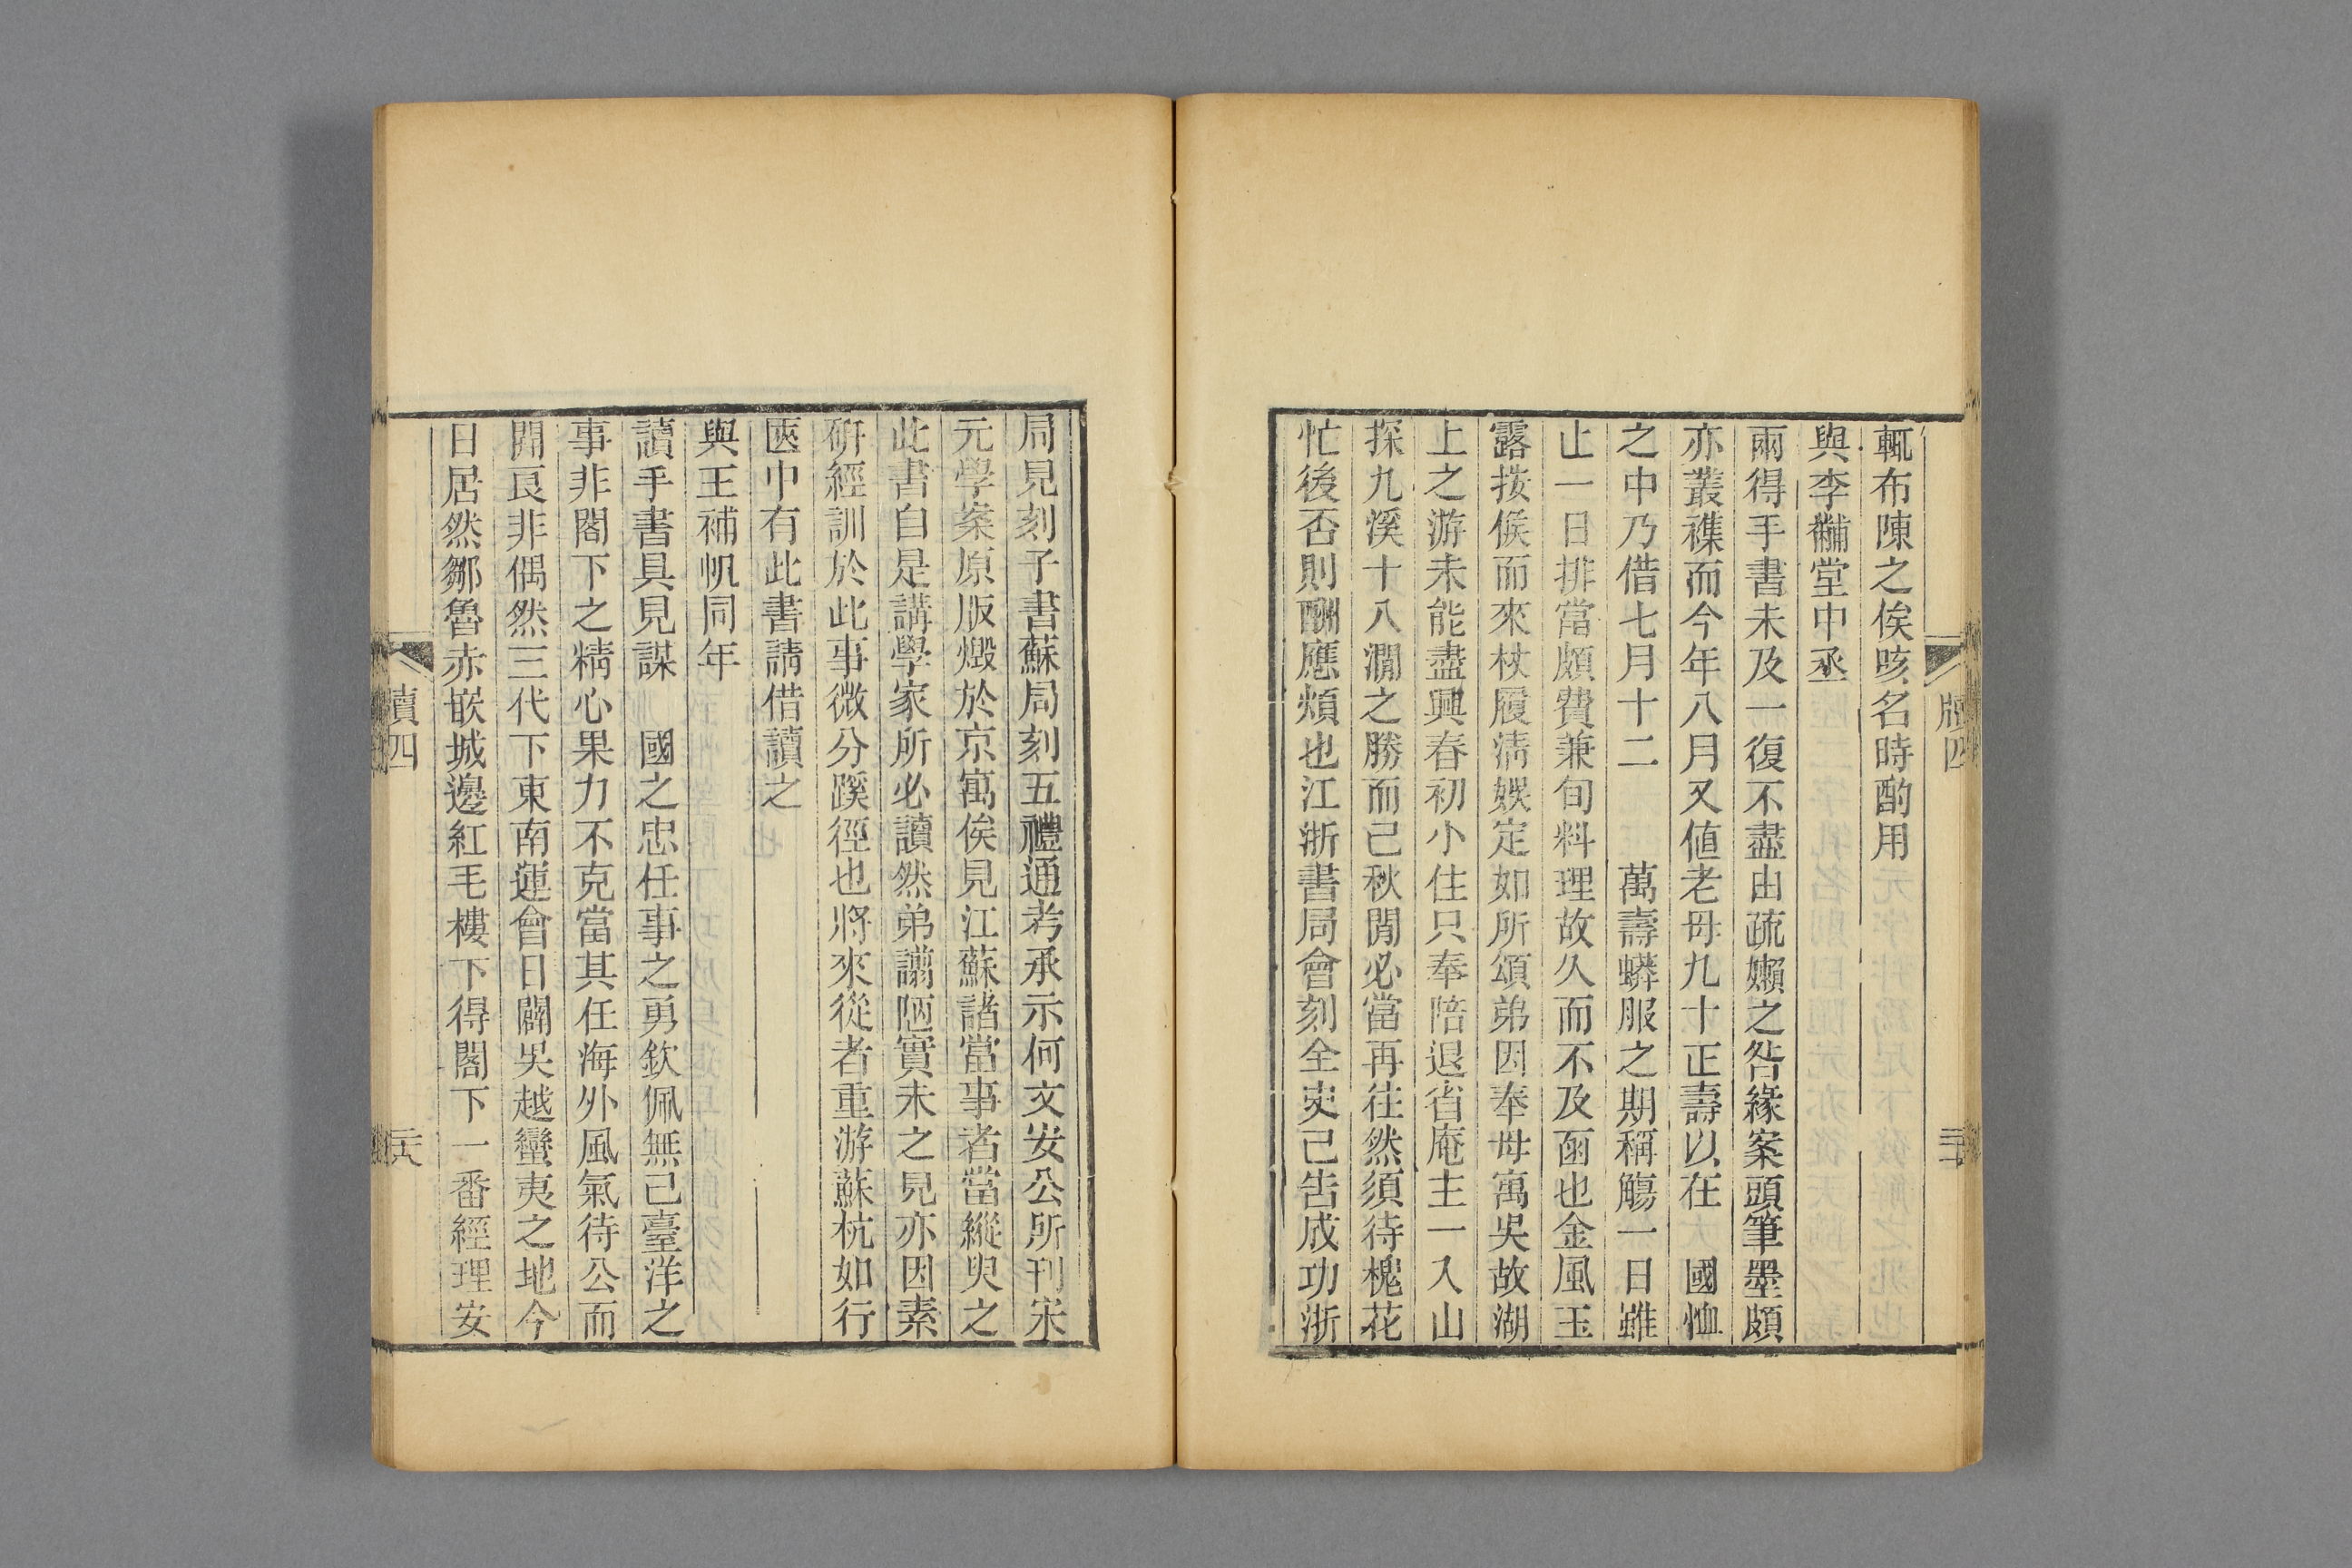 輒布陳之俟咳名時酌用
與李黼堂中丞
兩得手書未及一復不盡由疏嬾之咎緣案頭筆墨頗
亦叢襍而今年八月又值老母九十正壽以在 國恤
之中乃借七月十二 萬壽蟒服之期稱觴一日雖
止一日排當頗費兼旬料理故久而不及函也金風玉
露按候而來杖履淸娛定如所頌弟因奉母寓吳故湖
上之游未能盡興春初小住只奉陪退省庵主一入山
探九溪十八澗之勝而已秋閒必當再往然須待槐花
忙後否則酬應煩也江浙書局會刻全史已告成功浙
局見刻子書蘇局刻五禮通考承示何文安公所刊宋
元學案原版燬於京寓俟見江蘇諸當事者當縱臾之
此書自是講學家所必讀然弟譾陋實未之見亦因素
硏經訓於此事微分蹊徑也將來從者重游蘇杭如行
匧中有此書請借讀之
與王補帆同年
讀手書具見謀 國之忠任事之勇欽佩無已臺洋之
事非閣下之精心果力不克當其任海外風氣待公而
開良非偶然三代下東南運會日闢吳越蠻夷之地今
日居然鄒魯赤嵌城邊紅毛樓下得閣下一番經理安
牘四